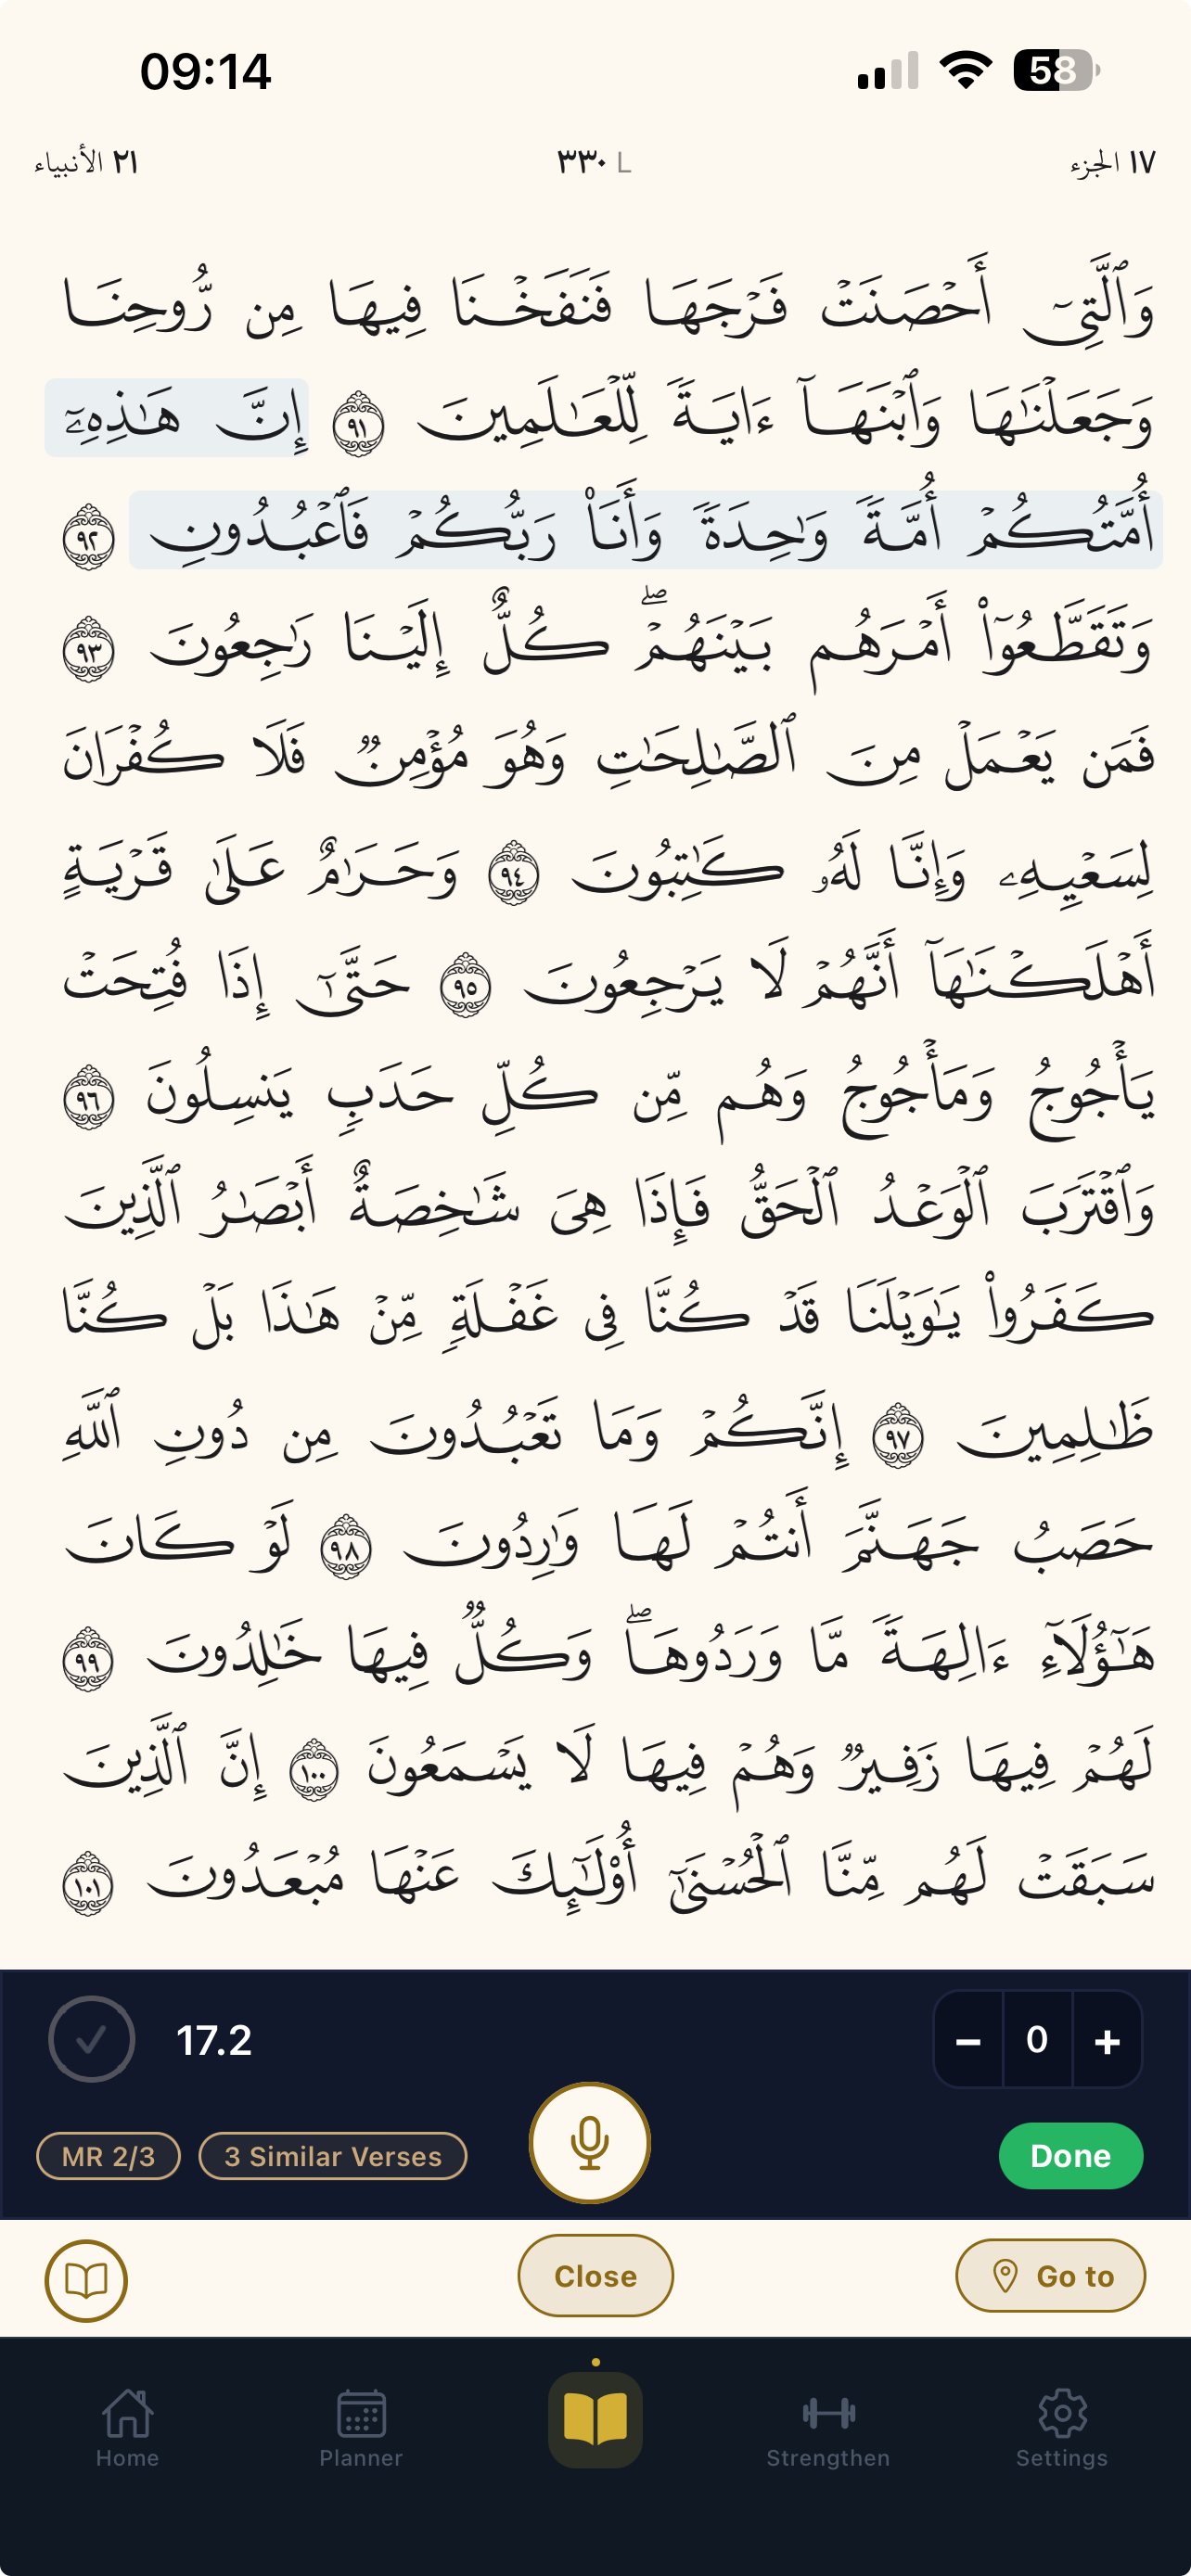 09:14
58
١٧ الجزء
٣٣٠ L
٢١ الأنبياء
وَٱلَّتِىٓ أَحْصَنَتْ فَرْجَهَا فَنَفَخْنَا فِيهَا مِن رُّوحِنَا
وَجَعَلْنَٰهَا وَٱبْنَهَآ ءَايَةً لِّلْعَٰلَمِينَ ٩١ إِنَّ هَٰذِهِۦٓ
أُمَّتُكُمْ أُمَّةً وَٰحِدَةً وَأَنَا۠ رَبُّكُمْ فَٱعْبُدُونِ ٩٢
وَتَقَطَّعُوٓا۟ أَمْرَهُم بَيْنَهُمْ ۖ كُلٌّ إِلَيْنَا رَٰجِعُونَ ٩٣
فَمَن يَعْمَلْ مِنَ ٱلصَّٰلِحَٰتِ وَهُوَ مُؤْمِنٌ فَلَا كُفْرَانَ
لِسَعْيِهِۦ وَإِنَّا لَهُۥ كَٰتِبُونَ ٩٤ وَحَرَٰمٌ عَلَىٰ قَرْيَةٍ
أَهْلَكْنَٰهَآ أَنَّهُمْ لَا يَرْجِعُونَ ٩٥ حَتَّىٰٓ إِذَا فُتِحَتْ
يَأْجُوجُ وَمَأْجُوجُ وَهُم مِّن كُلِّ حَدَبٍ يَنسِلُونَ ٩٦
وَٱقْتَرَبَ ٱلْوَعْدُ ٱلْحَقُّ فَإِذَا هِىَ شَٰخِصَةٌ أَبْصَٰرُ ٱلَّذِينَ
كَفَرُوا۟ يَٰوَيْلَنَا قَدْ كُنَّا فِى غَفْلَةٍ مِّنْ هَٰذَا بَلْ كُنَّا
ظَٰلِمِينَ ٩٧ إِنَّكُمْ وَمَا تَعْبُدُونَ مِن دُونِ ٱللَّهِ
حَصَبُ جَهَنَّمَ أَنتُمْ لَهَا وَٰرِدُونَ ٩٨ لَوْ كَانَ
هَٰٓؤُلَآءِ ءَالِهَةً مَّا وَرَدُوهَا ۖ وَكُلٌّ فِيهَا خَٰلِدُونَ ٩٩
لَهُمْ فِيهَا زَفِيرٌ وَهُمْ فِيهَا لَا يَسْمَعُونَ ١٠٠ إِنَّ ٱلَّذِينَ
سَبَقَتْ لَهُم مِّنَّا ٱلْحُسْنَىٰٓ أُو۟لَٰٓئِكَ عَنْهَا مُبْعَدُونَ ١٠١
17.2
− 0 +
MR 2/3
3 Similar Verses
Done
Close
Go to
Home
Planner
Strengthen
Settings